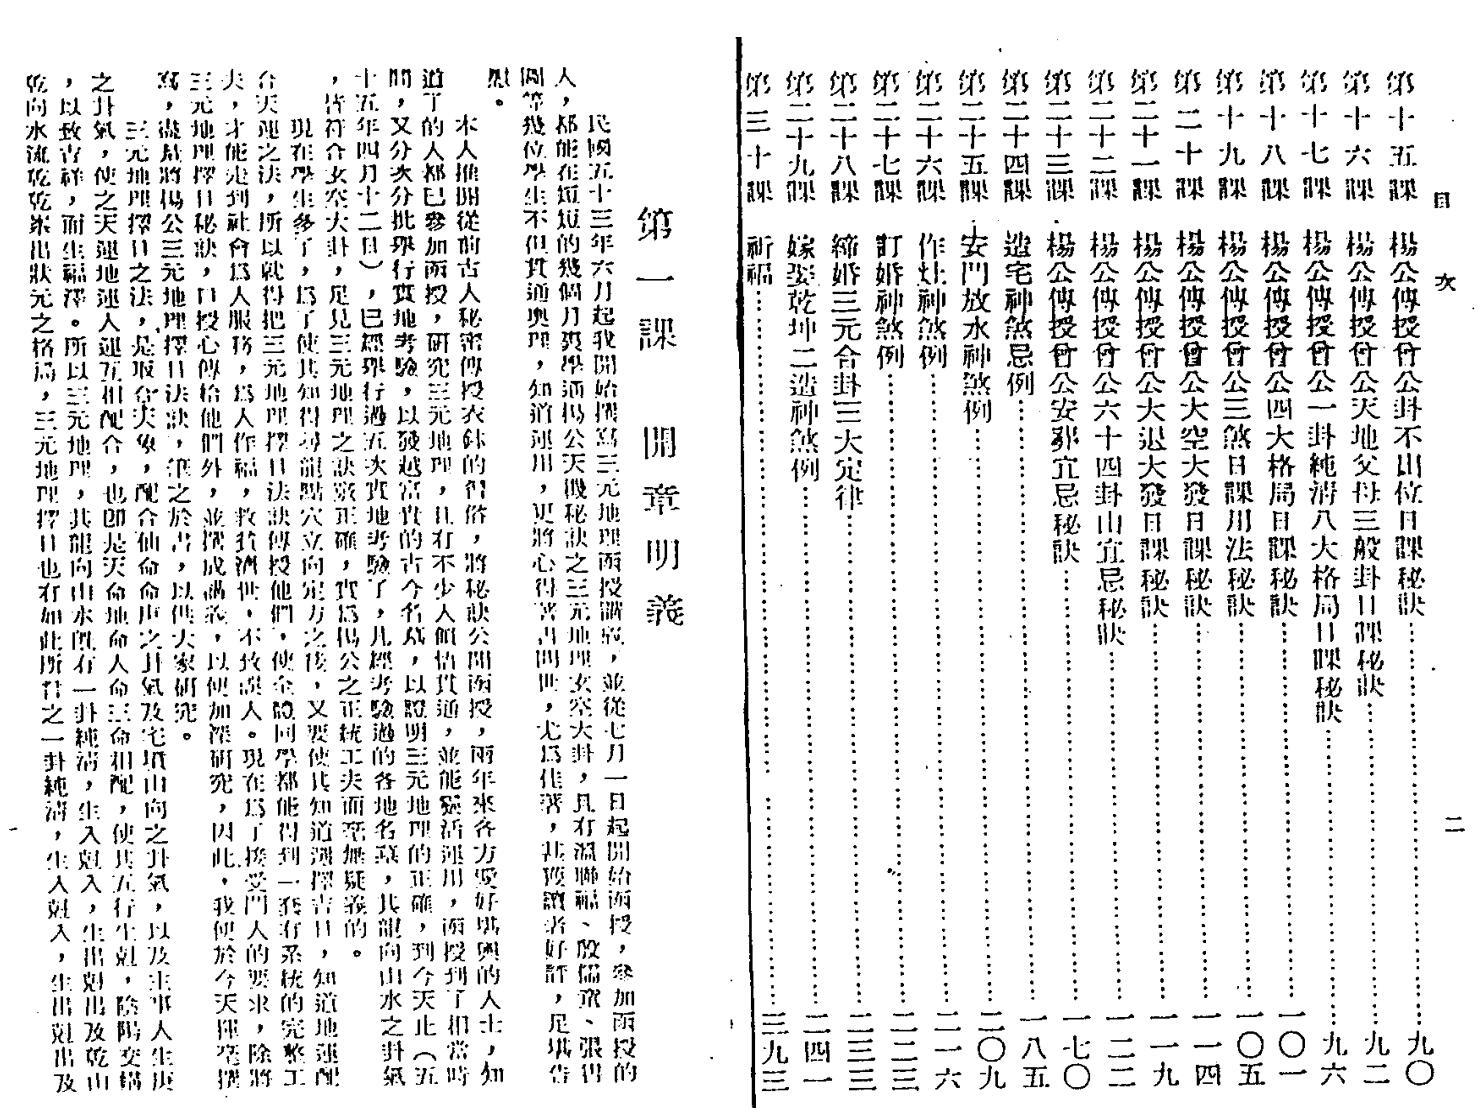 目次
二
第十五課 楊公傳授曾公卦不出位日課秘訣……九〇
第十六課 楊公傳授曾公天地父母三般卦日課秘訣……九二
第十七課 楊公傳授曾公一卦純清八大格局日課秘訣……九六
第十八課 楊公傳授曾公四大格局日課秘訣……一〇一
第十九課 楊公傳授曾公三煞日課用法秘訣……一〇五
第二十課 楊公傳授曾公大空大發日課秘訣……一一四
第二十一課 楊公傳授曾公大退大發日課秘訣……一一九
第二十二課 楊公傳授曾公六十四卦山宜忌秘訣……一二二
第二十三課 楊公傳授曾公安葬宜忌秘訣……一七〇
第二十四課 造宅神煞忌例……一八五
第二十五課 安門放水神煞例……二〇九
第二十六課 作灶神煞例……二一六
第二十七課 訂婚神煞例……二二三
第二十八課 締婚三元合卦三大定律……二三三
第二十九課 嫁娶乾坤二造神煞例……二四一
第三十課 祈福……三九三
第一課 開章明義
民國五十三年六月起我開始撰寫三元地理函授講義，並從七月一日起開始函授，參加函授的
人，都能在短短的幾個月裏學通楊公天機秘訣之三元地理玄空大卦，具有溫聯福、殷儒童、張得
圖等幾位學生不但貫通奧理，知道運用，更將心得著書問世，尤爲佳著，甚獲讀者好評，足堪告
慰。
本人推開從前古人秘密傳授衣缽的習俗，將秘訣公開函授，兩年來各方愛好堪輿的人士，知
道了的人都已參加函授，研究三元地理，且有不少人領悟貫通，並能靈活運用，函授到了相當時
間，又分次分批舉行實地考驗，以發越富貴的古今名墓，以證明三元地理的正確，到今天止（五
十五年四月十二日），已經舉行過五次實地考驗了，凡經考驗過的各地名墓，其龍向山水之卦氣
，皆符合玄空大卦，足見三元地理之訣竅正確，實爲楊公之正統工夫而毫無疑義的。
現在學生多了，爲了使其知得尋龍點穴立向定方之後，又要使其知道選擇吉日，知道地運配
合天運之法，所以就得把三元地理擇日法訣傳授他們，使全體同學都能得到一套有系統的完整工
夫，才能走到社會爲人服務，爲人作福，救貧濟世，不致誤人。現在爲了接受門人的要求，除將
三元地理擇日秘訣，口授心傳給他們外，並撰成講義，以便加深研究，因此，我便於今天揮筆撰
寫，盡量將楊公三元地理擇日法訣，筆之於書，以供大家研究。
三元地理擇日之法，是取合天象，配合仙命命庚之卦氣及宅墳山向之卦氣，以及主事人生庚
之卦氣，使之天運地運人運互相配合，也卽是天命地命人命三命相配，使其五行生尅，陰陽交媾
，以致吉祥，而生福澤。所以三元地理，其龍向山水旣有一卦純清，生入尅入，生出尅出及乾山
乾向水流乾乾峯出狀元之格局，三元地理擇日也有如此所昔之一卦純清，生入尅入，生出尅出及